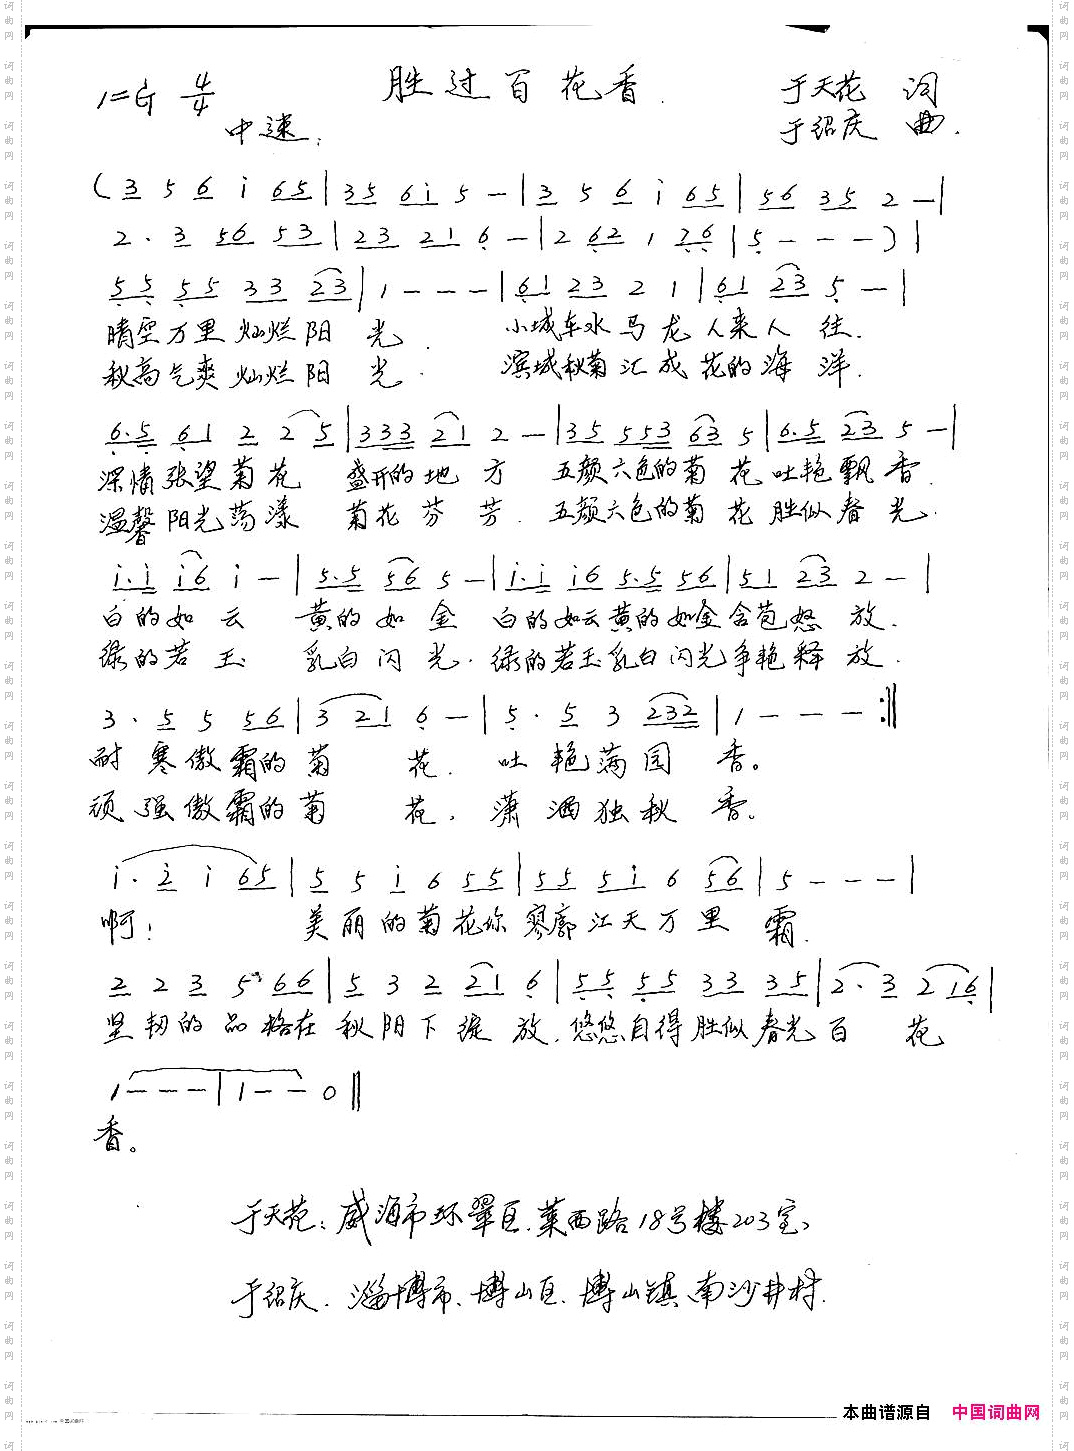 胜过百花香
1=G 4/4
于天花 词
中速:
于绍庆 曲.
(3 5 6 i 65|35 6i 5 —|3 5 6 i 65|56 35 2 —|
2. 3 56 53|23 21 6 —|2 62 1 76|5 — — —)|
55 55 33 23|1 — — —|61 23 2 1|61 23 5 —|
晴空万里灿烂阳 光. 小城车水马龙人来人往.
秋高气爽灿烂阳 光. 滨城秋菊汇成花的海洋.
6.5 61 2 2 5|333 21 2 —|35 553 63 5|6.5 23 5 —|
深情张望菊花 盛开的地方 五颜六色的菊花吐艳飘香.
温馨阳光荡漾 菊花芬芳. 五颜六色的菊花胜似春光.
i.i i6 i —|5.5 56 5 —|i.i i6 5.5 56|51 23 2 —|
白的如云 黄的如金 白的如云黄的如金含苞怒放.
绿的若玉 乳白闪光. 绿的若玉乳白闪光争艳释放.
3. 5 5 56|3 21 6 —|5. 5 3 232|1 — — — :||
耐寒傲霜的菊 花. 吐艳满园香。
顽强傲霜的菊 花, 潇洒独秋香。
i. 2 i 65|5 5 i 6 55|55 5i 6 56|5 — — —|
啊! 美丽的菊花你寥廓江天万里霜.
2 2 3 5 66|5 3 2 21 6|55 55 33 35|2. 3 2 16|
坚韧的品格在秋阳下绽放. 悠悠自得胜似春光百 花
1 — — —|1 — — 0||
香。
于天花: 威海市环翠区.莱西路18号楼203室。
于绍庆. 淄博市、博山区.博山镇.南沙井村.
本曲谱源自 中国词曲网